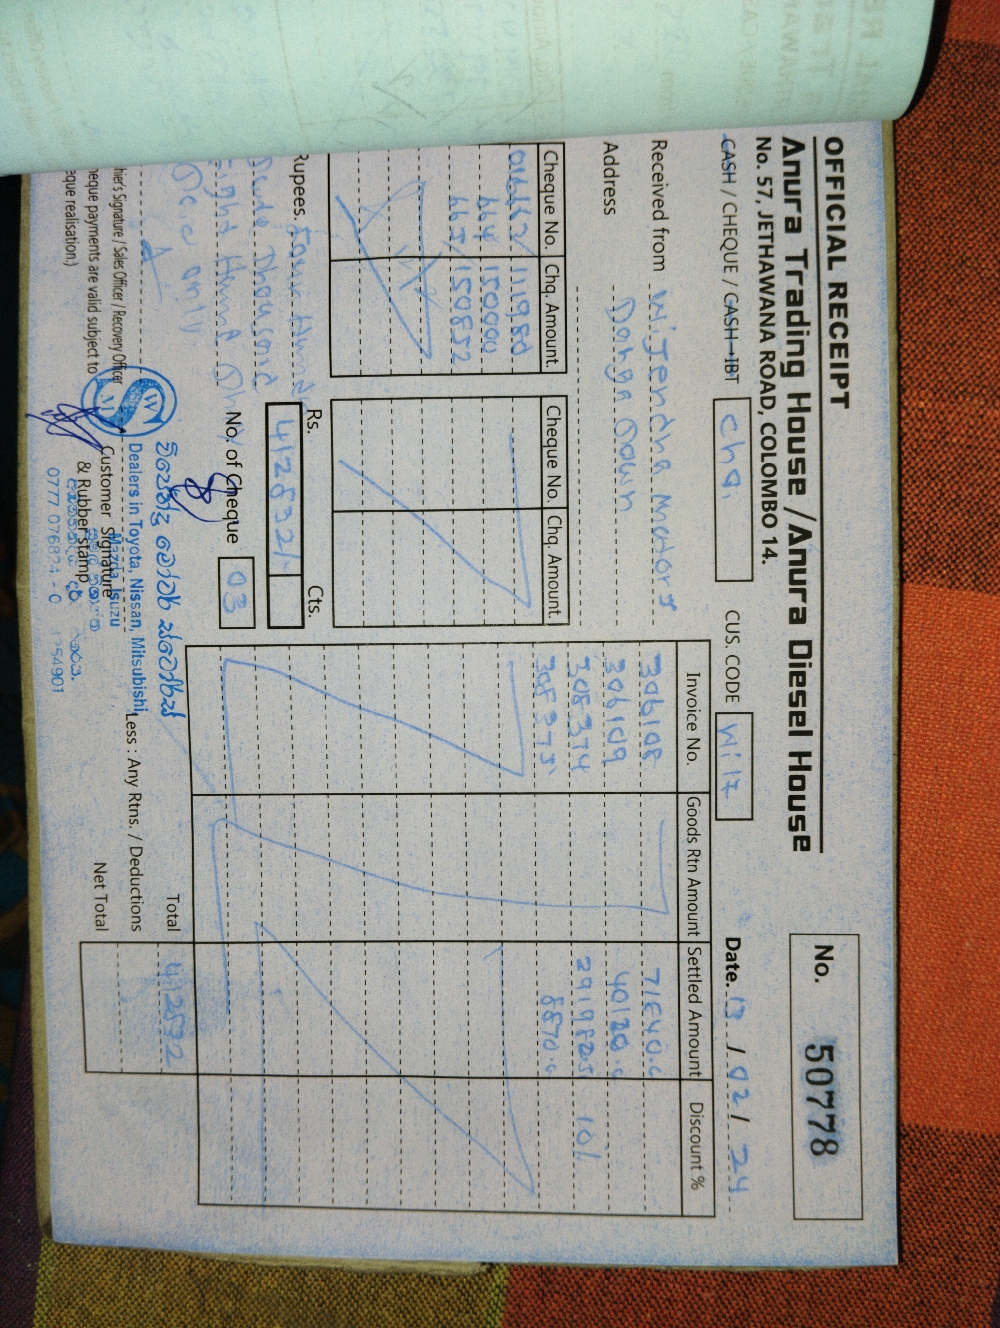 OFFICIAL RECEIPT
Anura Trading House / Anura Diesel House
No. 57, JETHAWANA ROAD, COLOMBO 14.
No. 50778
CASH / CHEQUE / CASH-IBT
Chq.
CUS. CODE
Wi 17
Date. 13 / 02 / 24
Received from Wijendra Motors
Address
Cheque No. Chq. Amount.
111980
664 150000
665 150852
Cheque No. Chq. Amount.
Invoice No. Goods Rtn Amount Settled Amount Discount %
306108 71640.0
306109 40120.0
308374 291982.5 10%
308375 8870.0
Rupees. Four Hund
Thousand
Eight Hund
only
Rs. Cts.
412832/-
No. of Cheque 03
Total 412832
Less : Any Rtns. / Deductions
Net Total
hier's Signature / Sales Officer / Recovery Officer
heque payments are valid subject to
eque realisation.)
Customer Signature
& Rubber stamp
W
M
Dealers in Toyota, Nissan, Mitsubishi,
Mazda, Isuzu